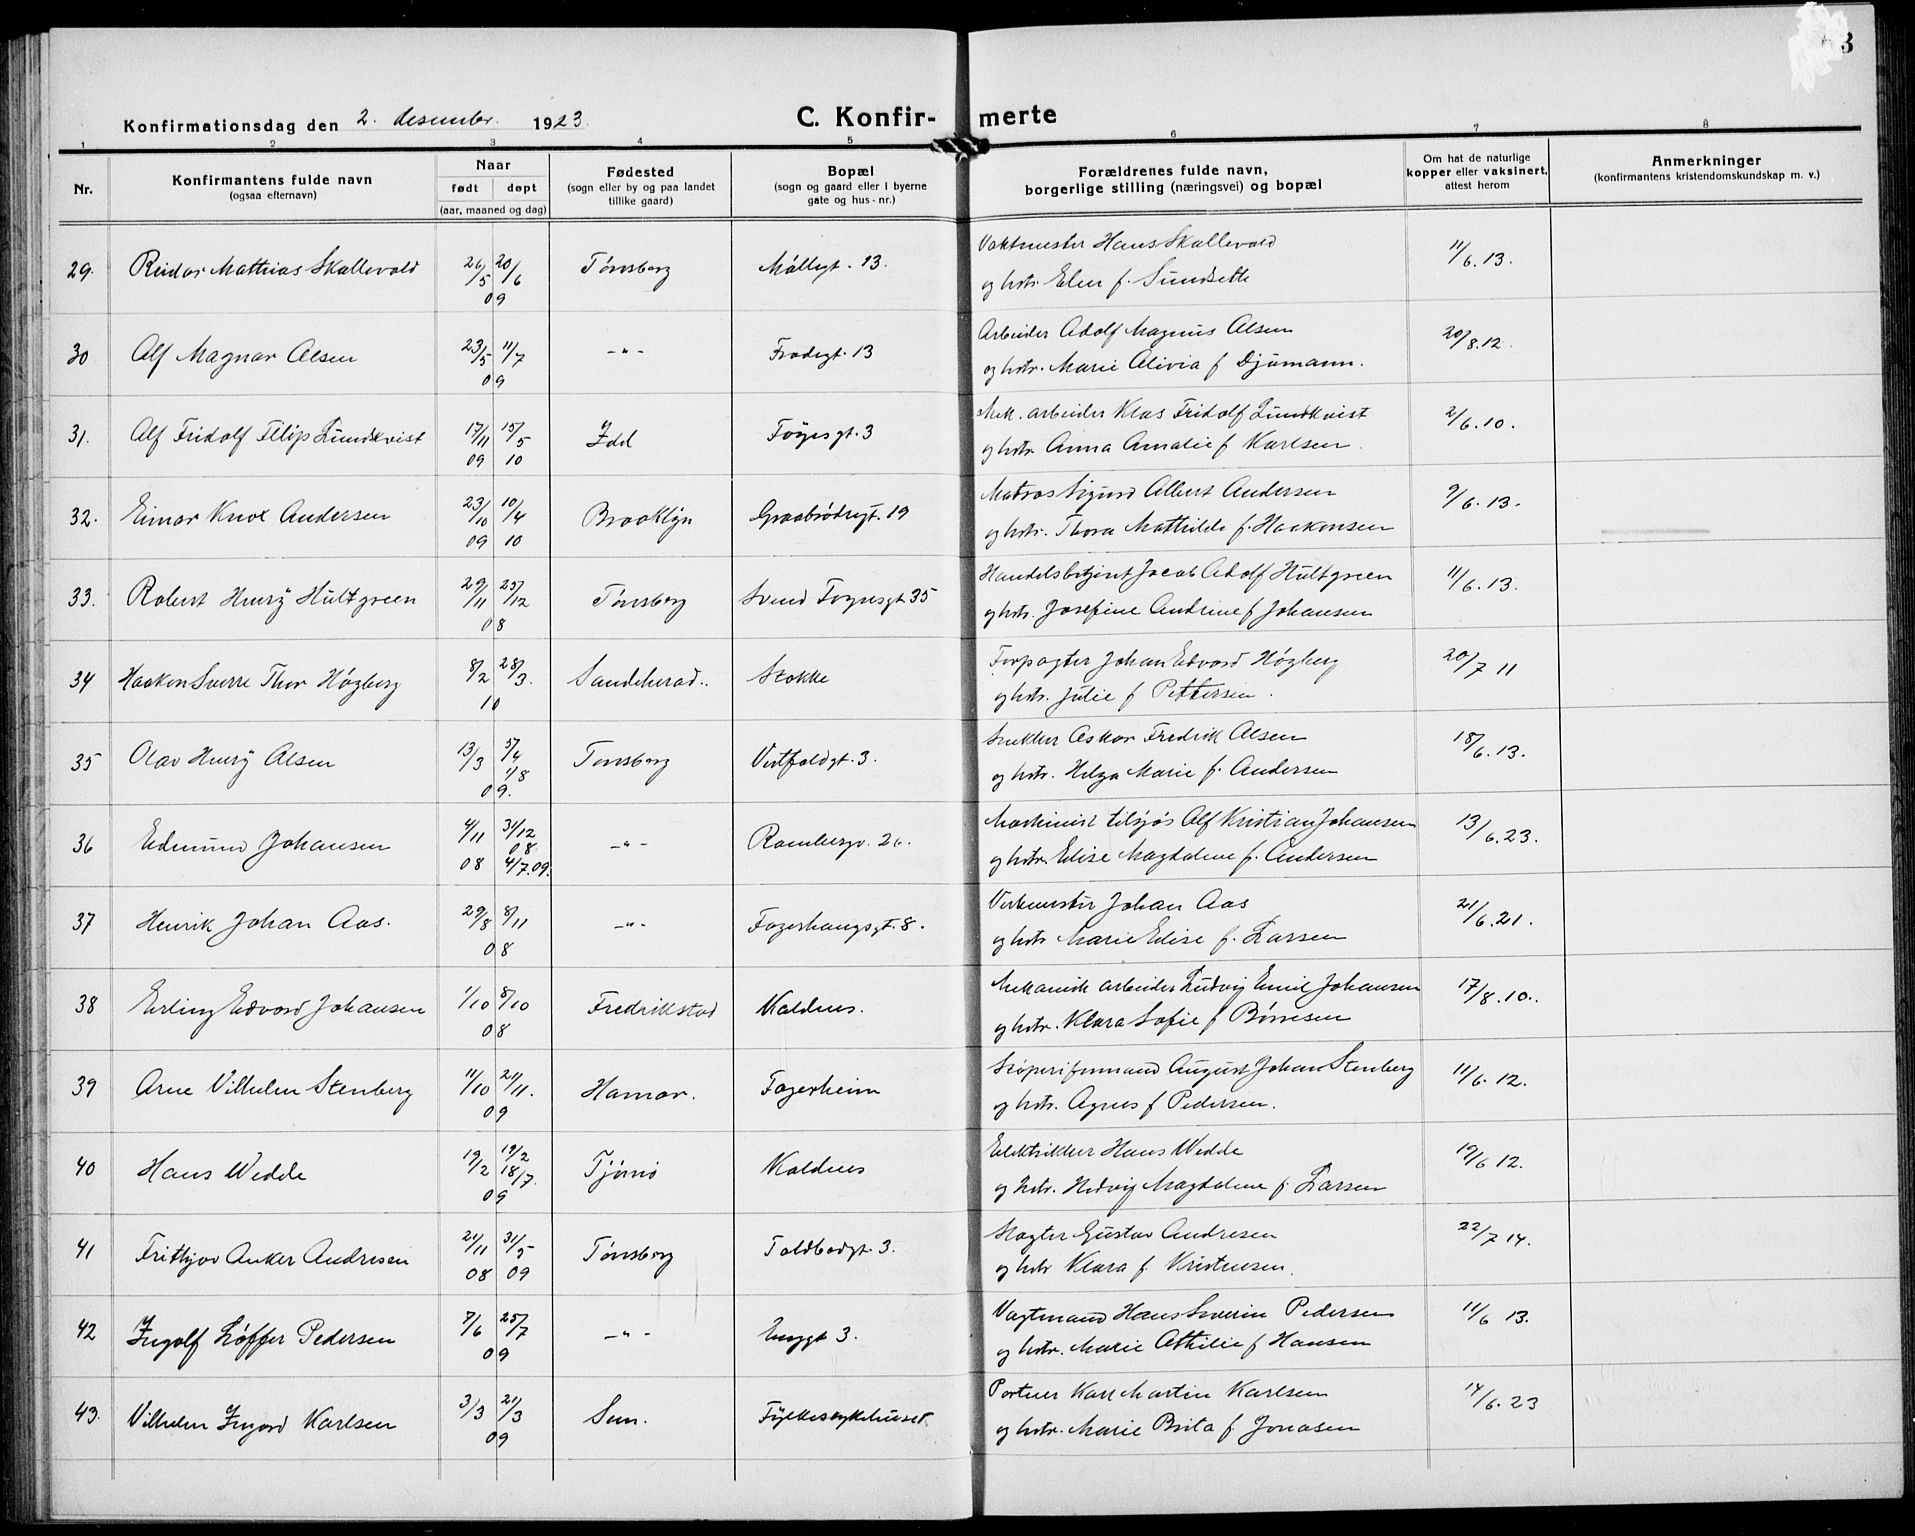 3
Konfirmationsdag den 2. desember. 1923.
C. Konfir- merte
1 2 3 4 5 6 7 8
Nr.
Konfirmantens fulde navn
(ogsaa efternavn)
Naar
født døpt
(aar, maaned og dag)
Fødested
(sogn eller by og paa landet
tillike gaard)
Bopæl
(sogn og gaard eller i byerne
gate og hus-nr.)
Forældrenes fulde navn,
borgerlige stilling (næringsvei) og bopæl
Om hat de naturlige
kopper eller vaksinert,
attest herom
Anmerkninger
(konfirmantens kristendomskundskap m. v.)
29. Reidar Mathias Skallevold 26/5 20/6 09 Tønsberg Møllegt. 13. Vaktmester Hans Skallevold 11/6.13.
og hstr. Elen f. Sundsette
30 Alf Magnar Olsen 23/5 11/7 09 -"- Frodegt. 13 Arbeider Adolf Magnus Olsen 20/8.12.
og hstr. Marie Olivia f Djumann.
31. Alf Fridolf Filip Lundkvist 17/11 09 15/5 10 Idd Føyesgt. 3 Mek. arbeider Klas Fridolf Lundkvist 2/6.10.
og hstr Anna Amalie f Karlsen.
32. Einar Knox Andersen 23/10 09 10/4 10 Brooklyn Graabrødregt. 19 Matros Sigurd Albert Andersen 9/6.13.
og hstr. Thora Mathilde f. Haakonsen
33. Robert Henry Hultgreen 29/11 25/12 08 Tønsberg Svend Foynsgt 35 Handelsbetjent Jacob Adolf Hultgreen 11/6.13.
og hstr. Josefine Andrine f Johansen
34 Haakon Sverre Thor Høgberg 8/2 28/3. 10 Sandeherad.. Stokke Forpagter Johan Edvard Høgberg 20/7 11
og hstr. Julie f Pettersen.
35 Olav Henry Olsen 13/3 5/4 1/8 09. Tønsberg Vestfoldgt. 3. Snekker Oskar Fredrik Olsen 18/6.13.
og hstr. Helga Marie f. Andersen
36 Edmund Johansen 4/11 08 31/12 08 4/7.09. -"- Rambergv. 26. Maskinist tilsjøs Alf Kristian Johansen 13/6.23.
og hstr. Elise Magdalene f. Andersen
37 Henrik Johan Aas. 29/8 8/11 08 -"- Fagerhaugsgt. 8. Verkmester Johan Aas 21/6.21.
og hstr Marie Elise f. Larsen
38 Erling Edvard Johansen 1/10 8/10 08 Fredrikstad Kaldnes. Mekanisk arbeider Ludvig Emil Johansen 17/8.10..
og hstr. Klara Sofie f Børresen
39 Arne Vilhelm Stenberg 11/10 21/11. 09 Hamar. Fagerheim Støperiformand August Johan Stenberg 11/6.12.
og hstr. Agnes f Pedersen.
40 Hans Wedde 19/2 19/2 18/7. 09 Tjømø Kaldnes Elektrikker Hans Wedde 19/6 12.
og hstr. Hedvig Magdalene f. Larsen
41 Frithjov Anker Andresen 21/11 08 31/5 09 Tønsberg Toldbodgt. 3. Slagter Gustav Andresen 22/7 14.
og hstr Klara f. Kristensen.
42 Ingolf Løffer Pedersen 7/6 25/7 09 -"- Enggt 3. Vagtmand Hans Severin Pedersen 11/6 13.
og hstr. Marie Othilie f Hansen
43. Vilhelm Ingard Karlsen 3/3 21/3 09 Sem. Fylkessykehuset. Portner Karl Martin Karlsen 14/6.23
og hstr. Marie Brita f. Jonasen